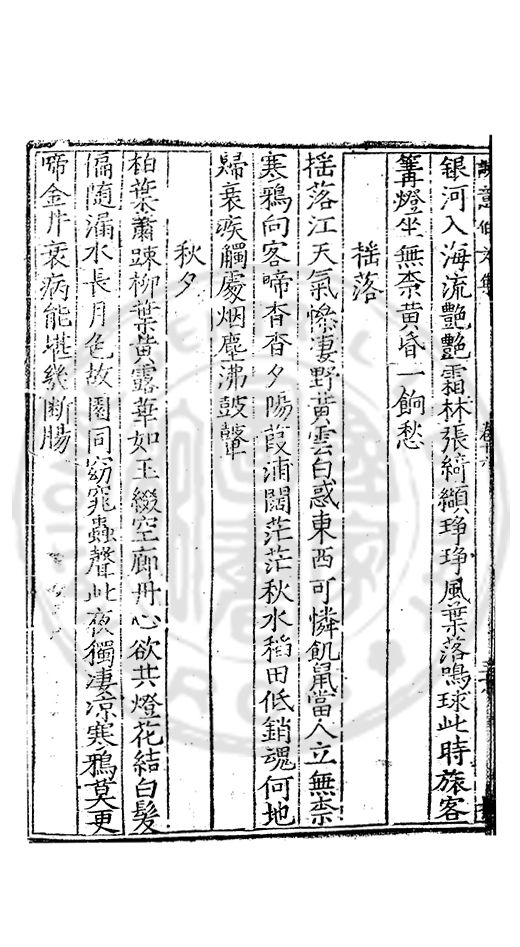 銀河入海流艷艷霜林張綺纈琤琤風葉落鳴球此時旅客
篝燈坐無柰黃昏一餉愁
揺落
揺落江天氣慘凄野黃雲白惑東西可憐飢鼠當人立無柰
寒鴉向客啼杳杳夕陽葭浦闊茫茫秋水稻田低銷魂何地
歸衰疾觸處烟塵沸鼓鼙
秋夕
柏葉蕭踈柳葉黃露華如玉綴空廊丹心欲共燈花結白髮
偏隨漏水長月色故園同窈窕蟲聲此夜獨凄凉寒鴉莫更
啼金井衰病能堪幾斷腸